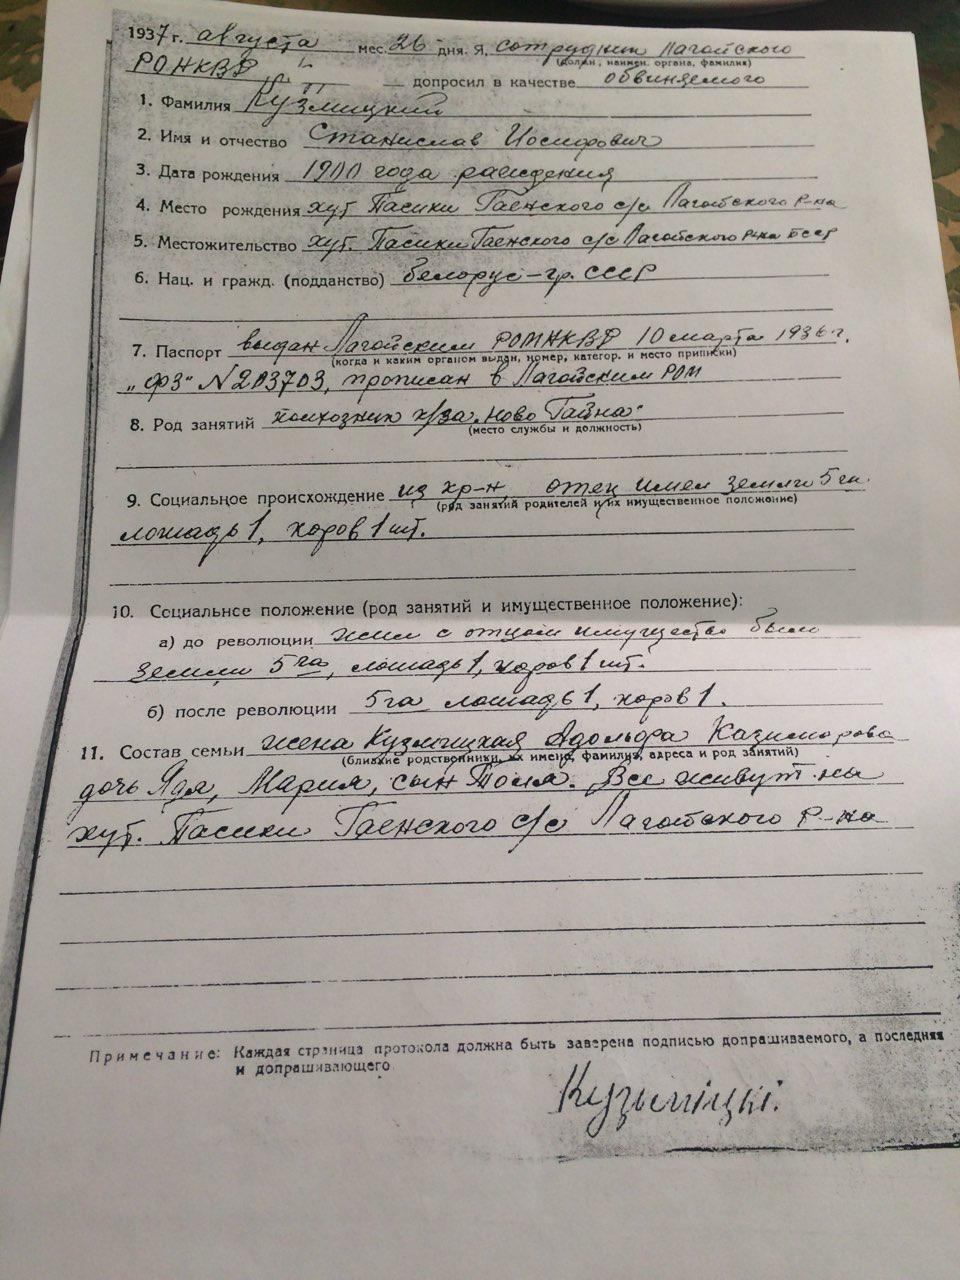 1937 г. августа мес. 26 дня. Я, сотрудник Лагойского
(должн., наимен. органа, фамилия)
РОНКВД допросил в качестве обвиняемого
1. Фамилия Кузмицкий
2. Имя и отчество Станислав Иосифович
3. Дата рождения 1900 года рождения
4. Место рождения хут Пасики Гаенского с/с Лагойского р-на
5. Местожительство хут. Пасики Гаенского с/с Лагойского р-на БССР
6. Нац. и гражд. (подданство) белорус – гр. СССР
7. Паспорт выдан Лагойским РОМНКВД 10 марта 1936 г.
(когда и каким органом выдан, номер, категор. и место приписки)
„ФЗ" N 203703, прописан в Лагойским РОМ
8. Род занятий колхозник к/за „Ново Гайна"
(место службы и должность)
9. Социальное происхождение из кр-н отец имел земли 5 га
(род занятий родителей и их имущественное положение)
лошадь 1, коров 1 шт.
10. Социальнсе положение (род занятий и имущественное положение):
а) до революции жил с отцом имущество было
земли 5 га, лошадь 1, коров 1 шт.
б) после революции 5 га лошадь 1, коров 1.
11. Состав семьи жена Кузмицкая Адольфа Казимировна
(близкие родственники, их имена, фамилии, адреса и род занятий)
дочь Ядя, Мария, сын Толя. Все живут на
хут. Пасики Гаенского с/с Лагойского р-на
Примечание: Каждая страница протокола должна быть заверена подписью допрашиваемого, а последняя
и допрашивающего
Кузьміцкі.